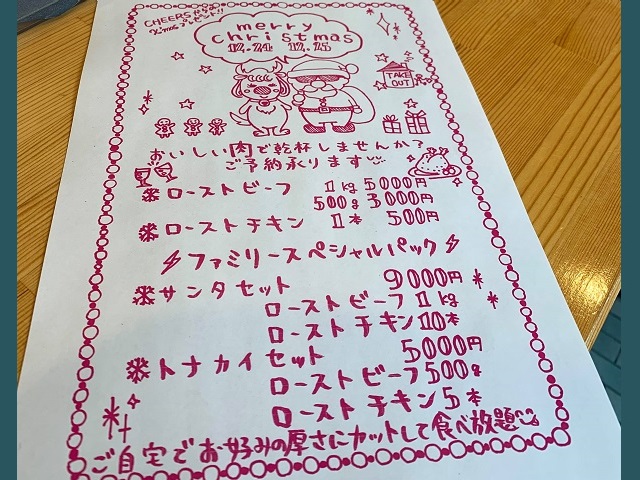 CHEERSからの
X'masプレゼント!!
merry
christmas
12.24 12.25
TAKE
OUT
おいしい肉で乾杯しませんか?
ご予約承ります
ローストビーフ 1kg 5000円
500g 3000円
ローストチキン 1本 500円
ファミリースペシャルパック
サンタセット 9000円
ローストビーフ1kg
ローストチキン10本
トナカイセット 5000円
ローストビーフ500g
ローストチキン5本
ご自宅でお好みの厚さにカットして食べ放題